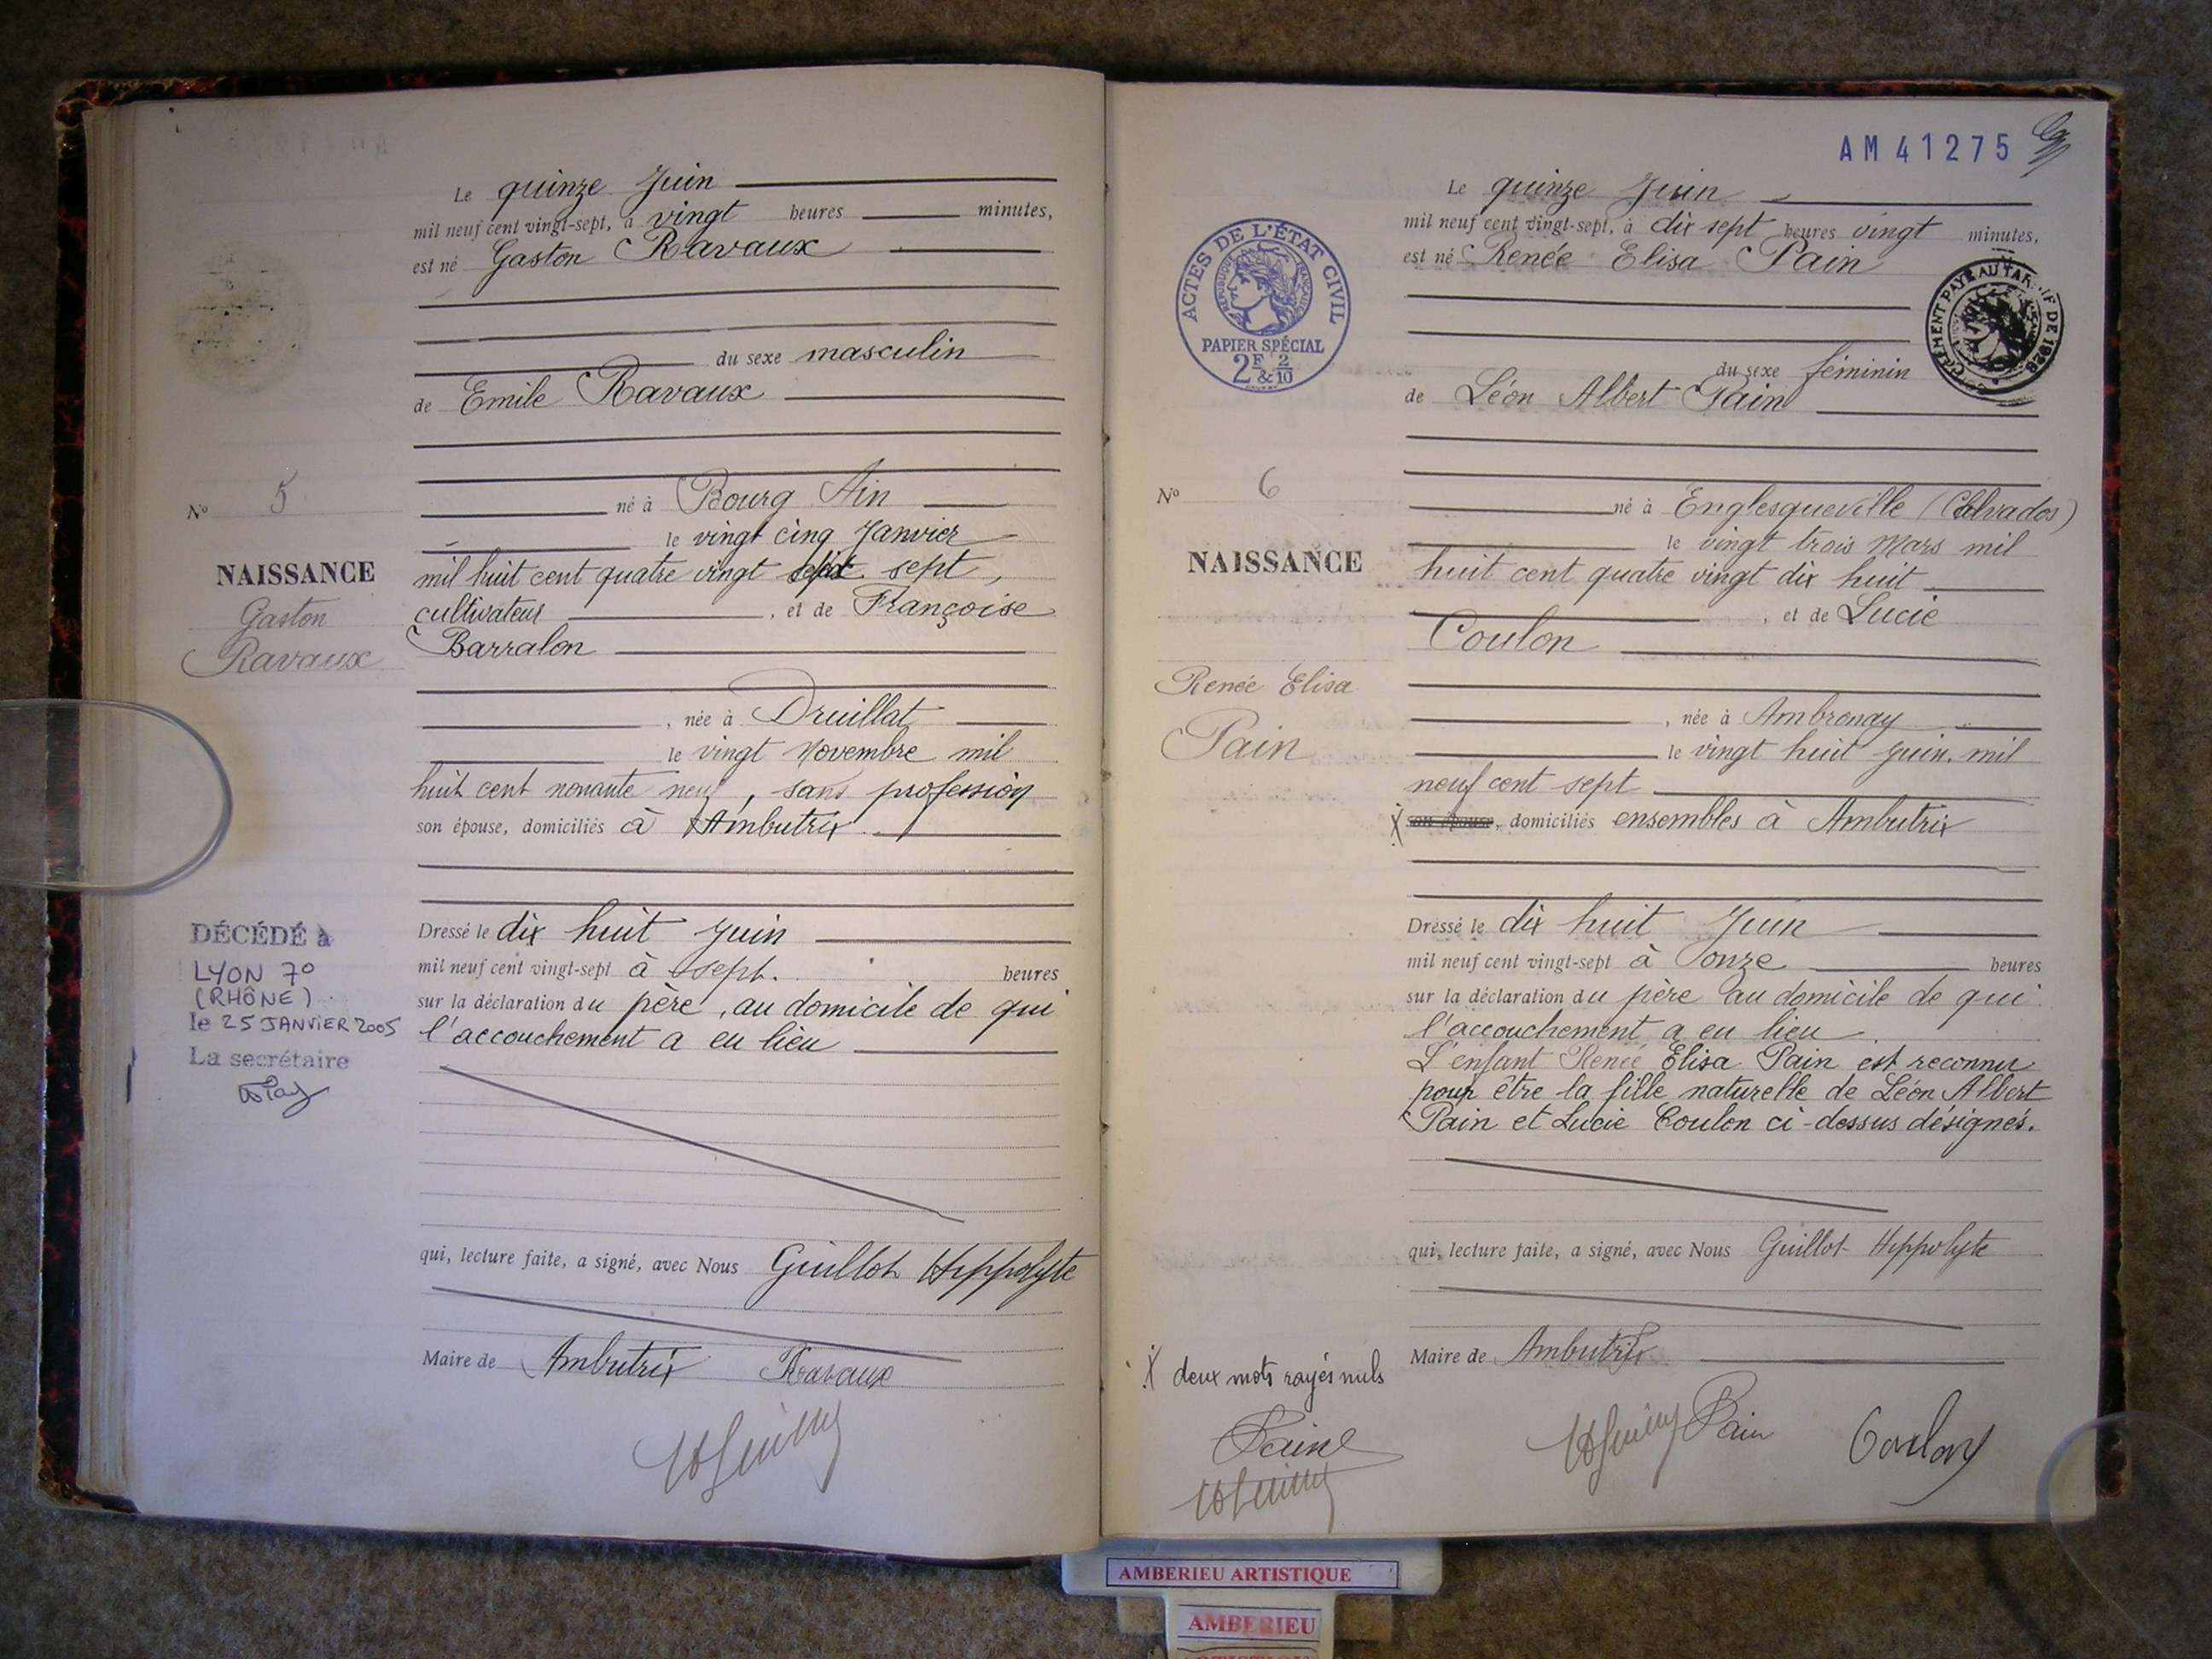 Le quinze Juin
mil neuf cent vingt-sept, à vingt heures minutes,
est né Gaston Ravaux
du sexe masculin
de Emile Ravaux
né à Bourg Ain
le vingt cinq Janvier
mil huit cent quatre vingt sept,
cultivateur, et de Françoise
Barralon
, née à Druillat
le vingt Novembre mil
huit cent nonante neuf, sans profession
son épouse, domiciliés à Ambutrix
Dressé le dix huit Juin
mil neuf cent vingt-sept à sept. heures
sur la déclaration du père, au domicile de qui
l'accouchement a eu lieu
qui, lecture faite, a signé, avec Nous Guillot Hippolyte
Maire de Ambutrix Ravaux
No 5
NAISSANCE
Gaston
Ravaux
DÉCÉDÉ à
LYON 7°
(RHÔNE)
le 25 JANVIER 2005
La secrétaire
AM41275
Le quinze Juin
mil neuf cent vingt-sept, à dix sept heures vingt minutes,
est né Renée Elisa Pain
du sexe féminin
de Léon Albert Pain
né à Englesqueville (Calvados)
le vingt trois Mars mil
huit cent quatre vingt dix huit
, et de Lucie
Coulon
, née à Ambronay
le vingt huit Juin. mil
neuf cent sept
X son épouse, domiciliés ensembles à Ambutrix
Dressé le dix huit Juin
mil neuf cent vingt-sept à onze heures
sur la déclaration du père au domicile de qui
l'accouchement a eu lieu.
L'enfant Renée Elisa Pain est reconnu
pour être la fille naturelle de Léon Albert
Pain et Lucie Coulon ci-dessus désignés.
qui, lecture faite, a signé, avec Nous Guillot Hippolyte
Maire de Ambutrix
Pain Coulon
ACTES DE L'ÉTAT CIVIL
RÉPUBLIQUE FRANÇAISE
PAPIER SPÉCIAL
2F & 2/10
No 6
NAISSANCE
Renée Elisa
Pain
X deux mots rayés nuls
Pain
AMBERIEU ARTISTIQUE
AMBERIEU
ARTISTIQUE